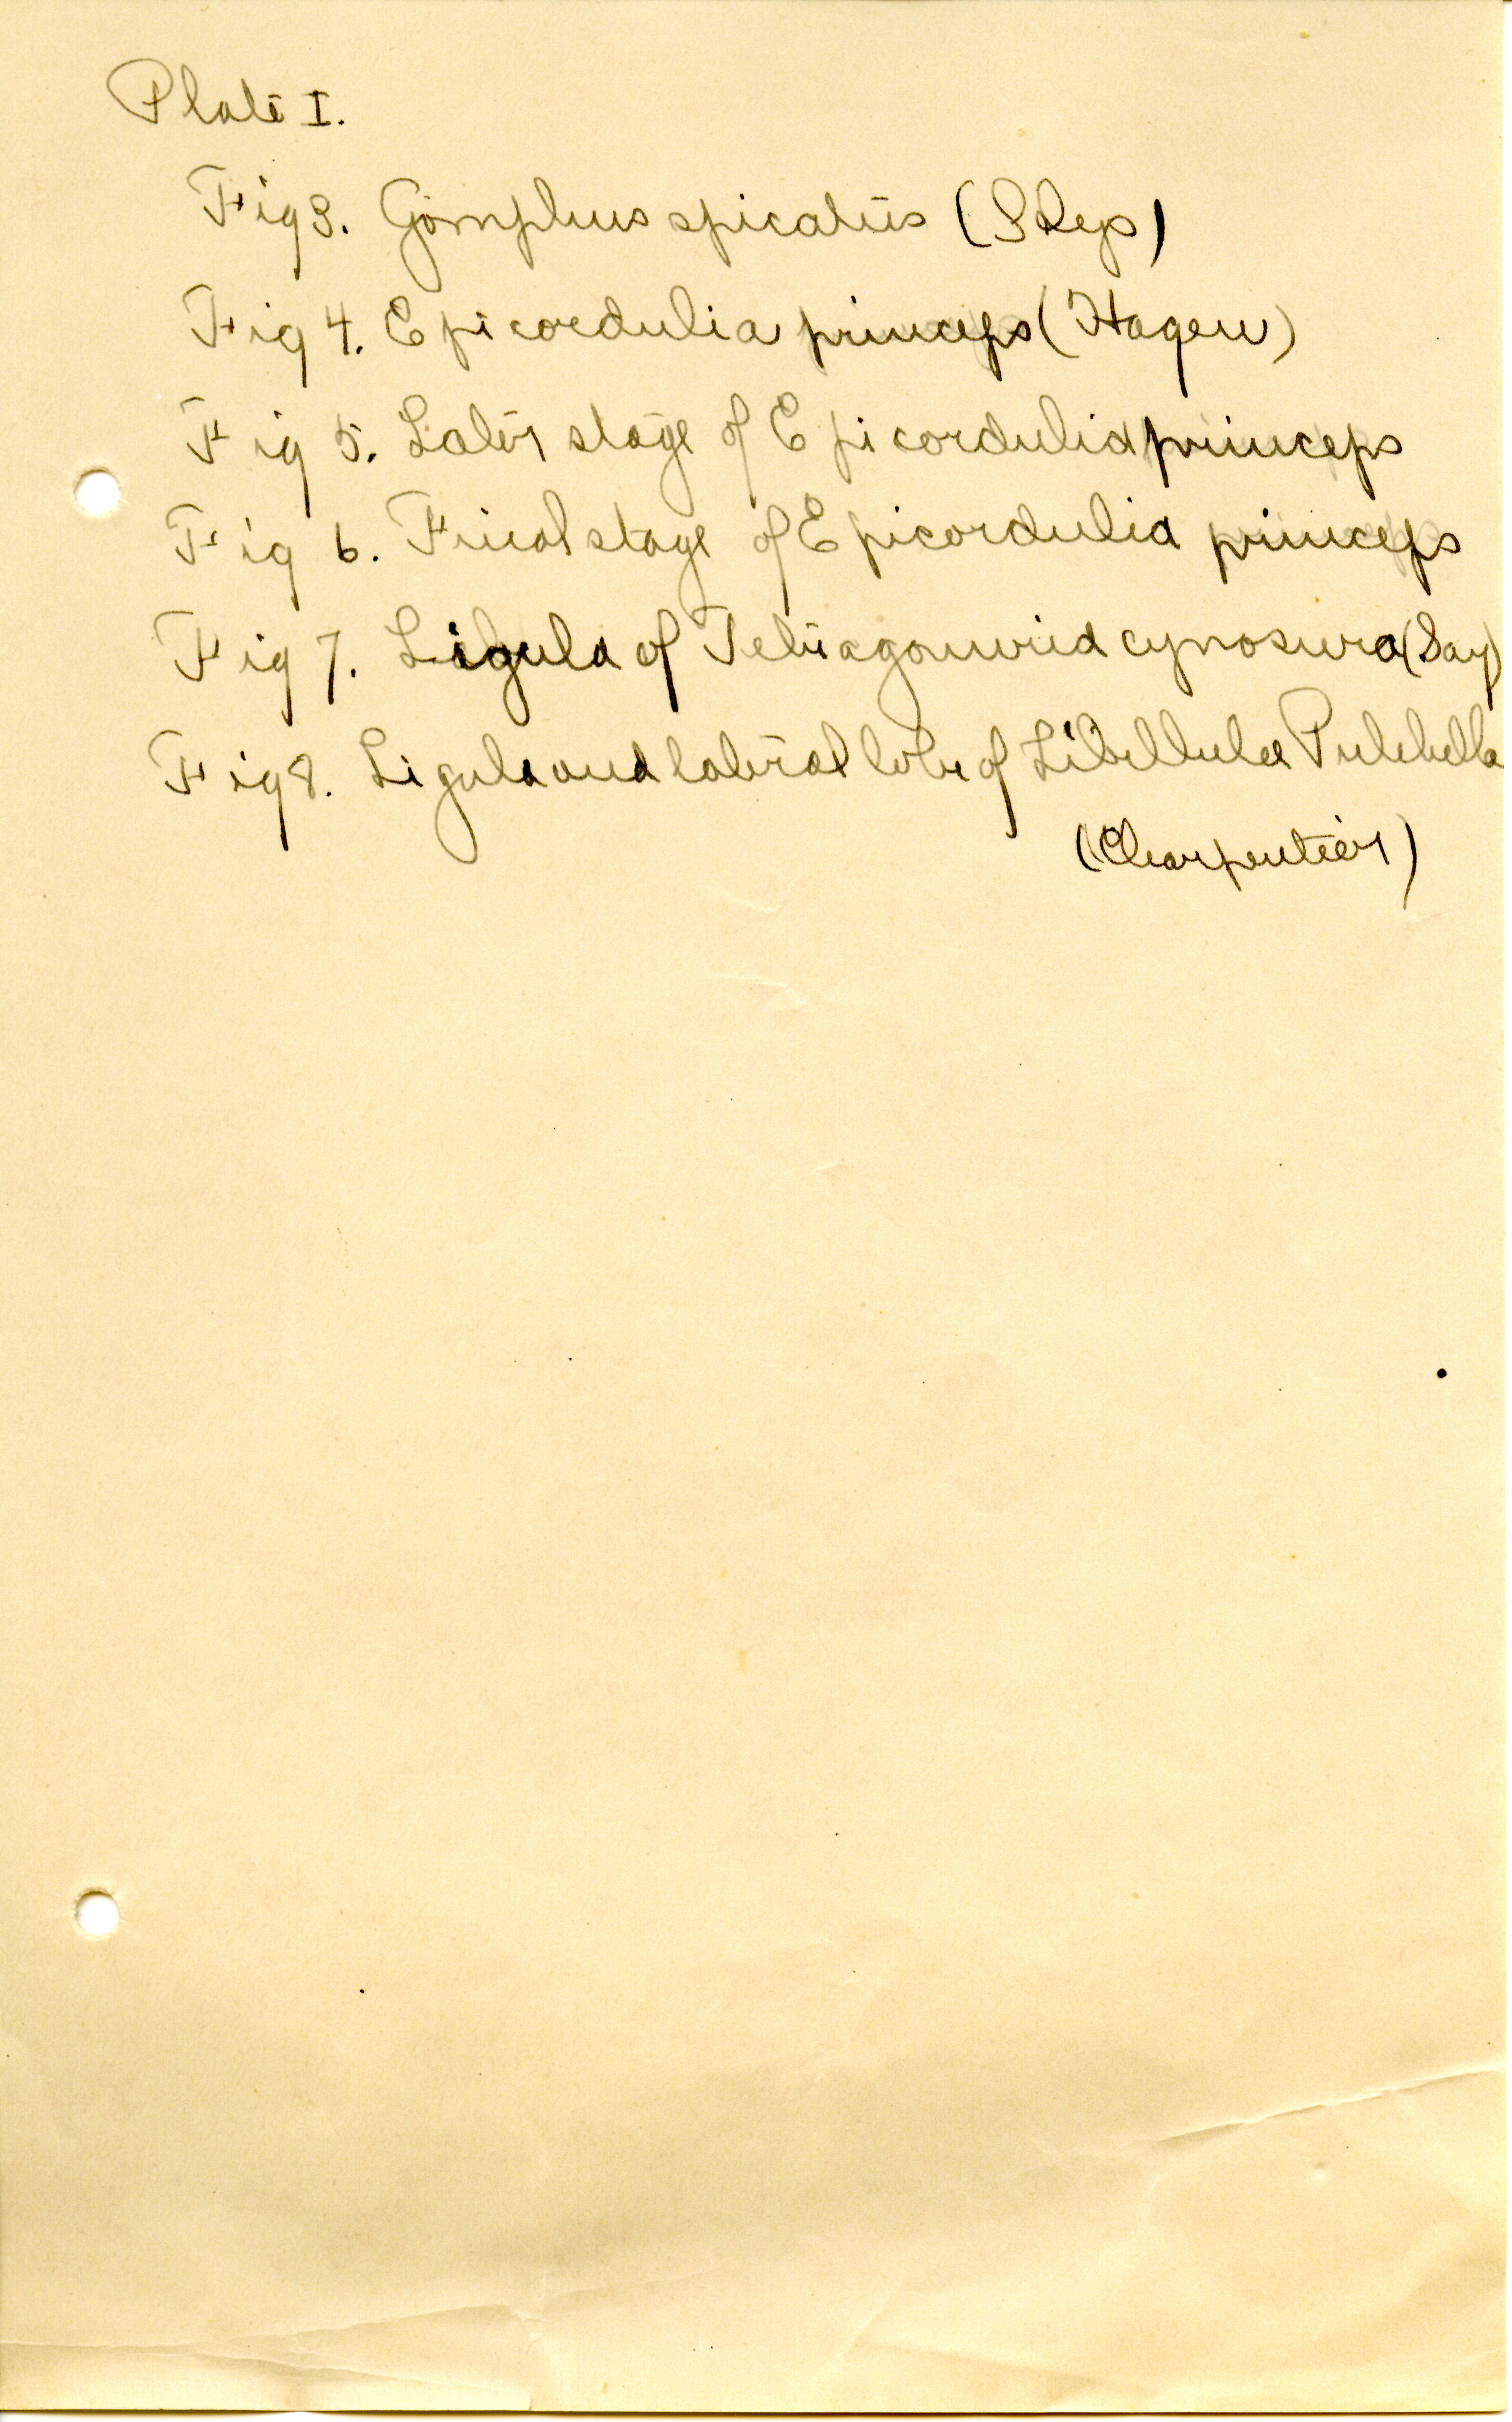 Plate I.
Fig 3. Gomphus spicatus (Selys)
Fig 4. Epicordulia princeps (Hagen)
Fig 5. Later stage of Epicordulia princeps
Fig 6. Final stage of Epicordulia princeps
Fig 7. Ligula of Tetragonuria cynosura (Say)
Fig 8. Ligula and lateral lobe of Libellula Pulchella
(Charpentier)